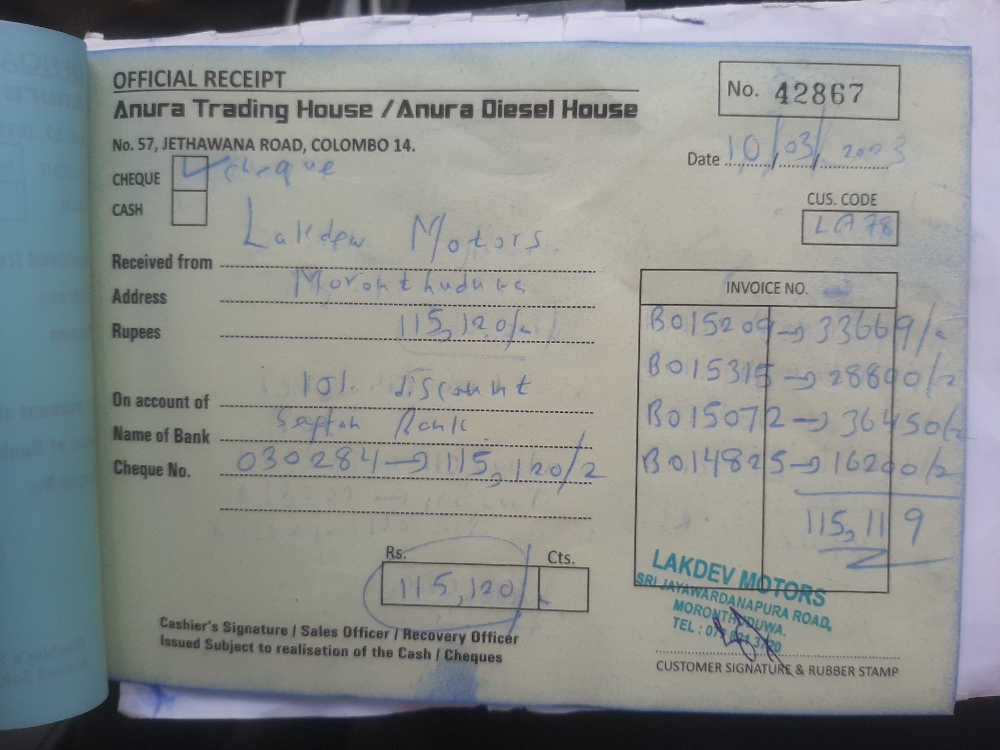 OFFICIAL RECEIPT
Anura Trading House / Anura Diesel House
No. 57, JETHAWANA ROAD, COLOMBO 14.
No. 42867
Date 10/03/2023
CHEQUE ✓ cheque
CASH
CUS. CODE
LA78
Received from Lakdew Motors
Address
Rupees 115,120/=
On account of 10% discount
Name of Bank Bank
Cheque No. 030284 → 115,120/=
INVOICE NO.
B015209 → 33669/=
B015315 → 28800/=
B015072 → 36450/=
B014825 → 16200/=
115,119
Rs. Cts.
115,120
Cashier's Signature / Sales Officer / Recovery Officer
Issued Subject to realisation of the Cash / Cheques
LAKDEV MOTORS
SRI JAYAWARDANAPURA ROAD,
MORONTHUDUWA.
TEL :
CUSTOMER SIGNATURE & RUBBER STAMP